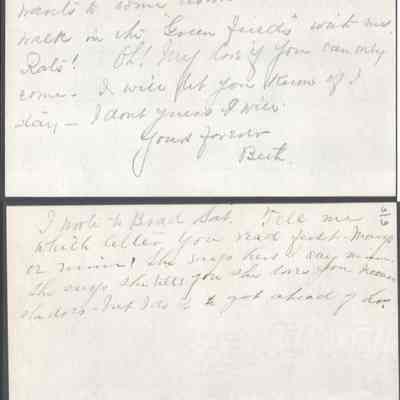 wants to some
walk in the "Green fields" with me.
Rats! Oh! My love if you can only
come. I will let you know if I
stay – I don't guess I will.
Yours forever
Beth.
I wrote to Brad Sat. Tell me
which letter you read first – Mary's
or mine! She says hers I say mine.
She says she tells you she loves you
she does – but I do to get ahead of her.